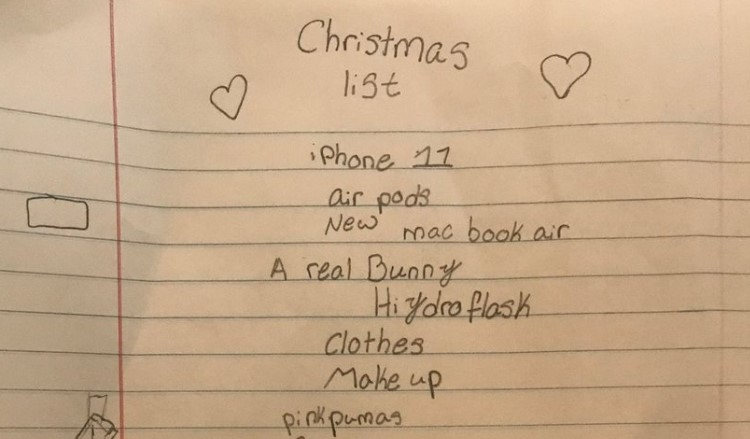 Christmas
list
iPhone 11
air pods
New mac book air
A real Bunny
Hiydroflask
Clothes
Makeup
pinkpumas